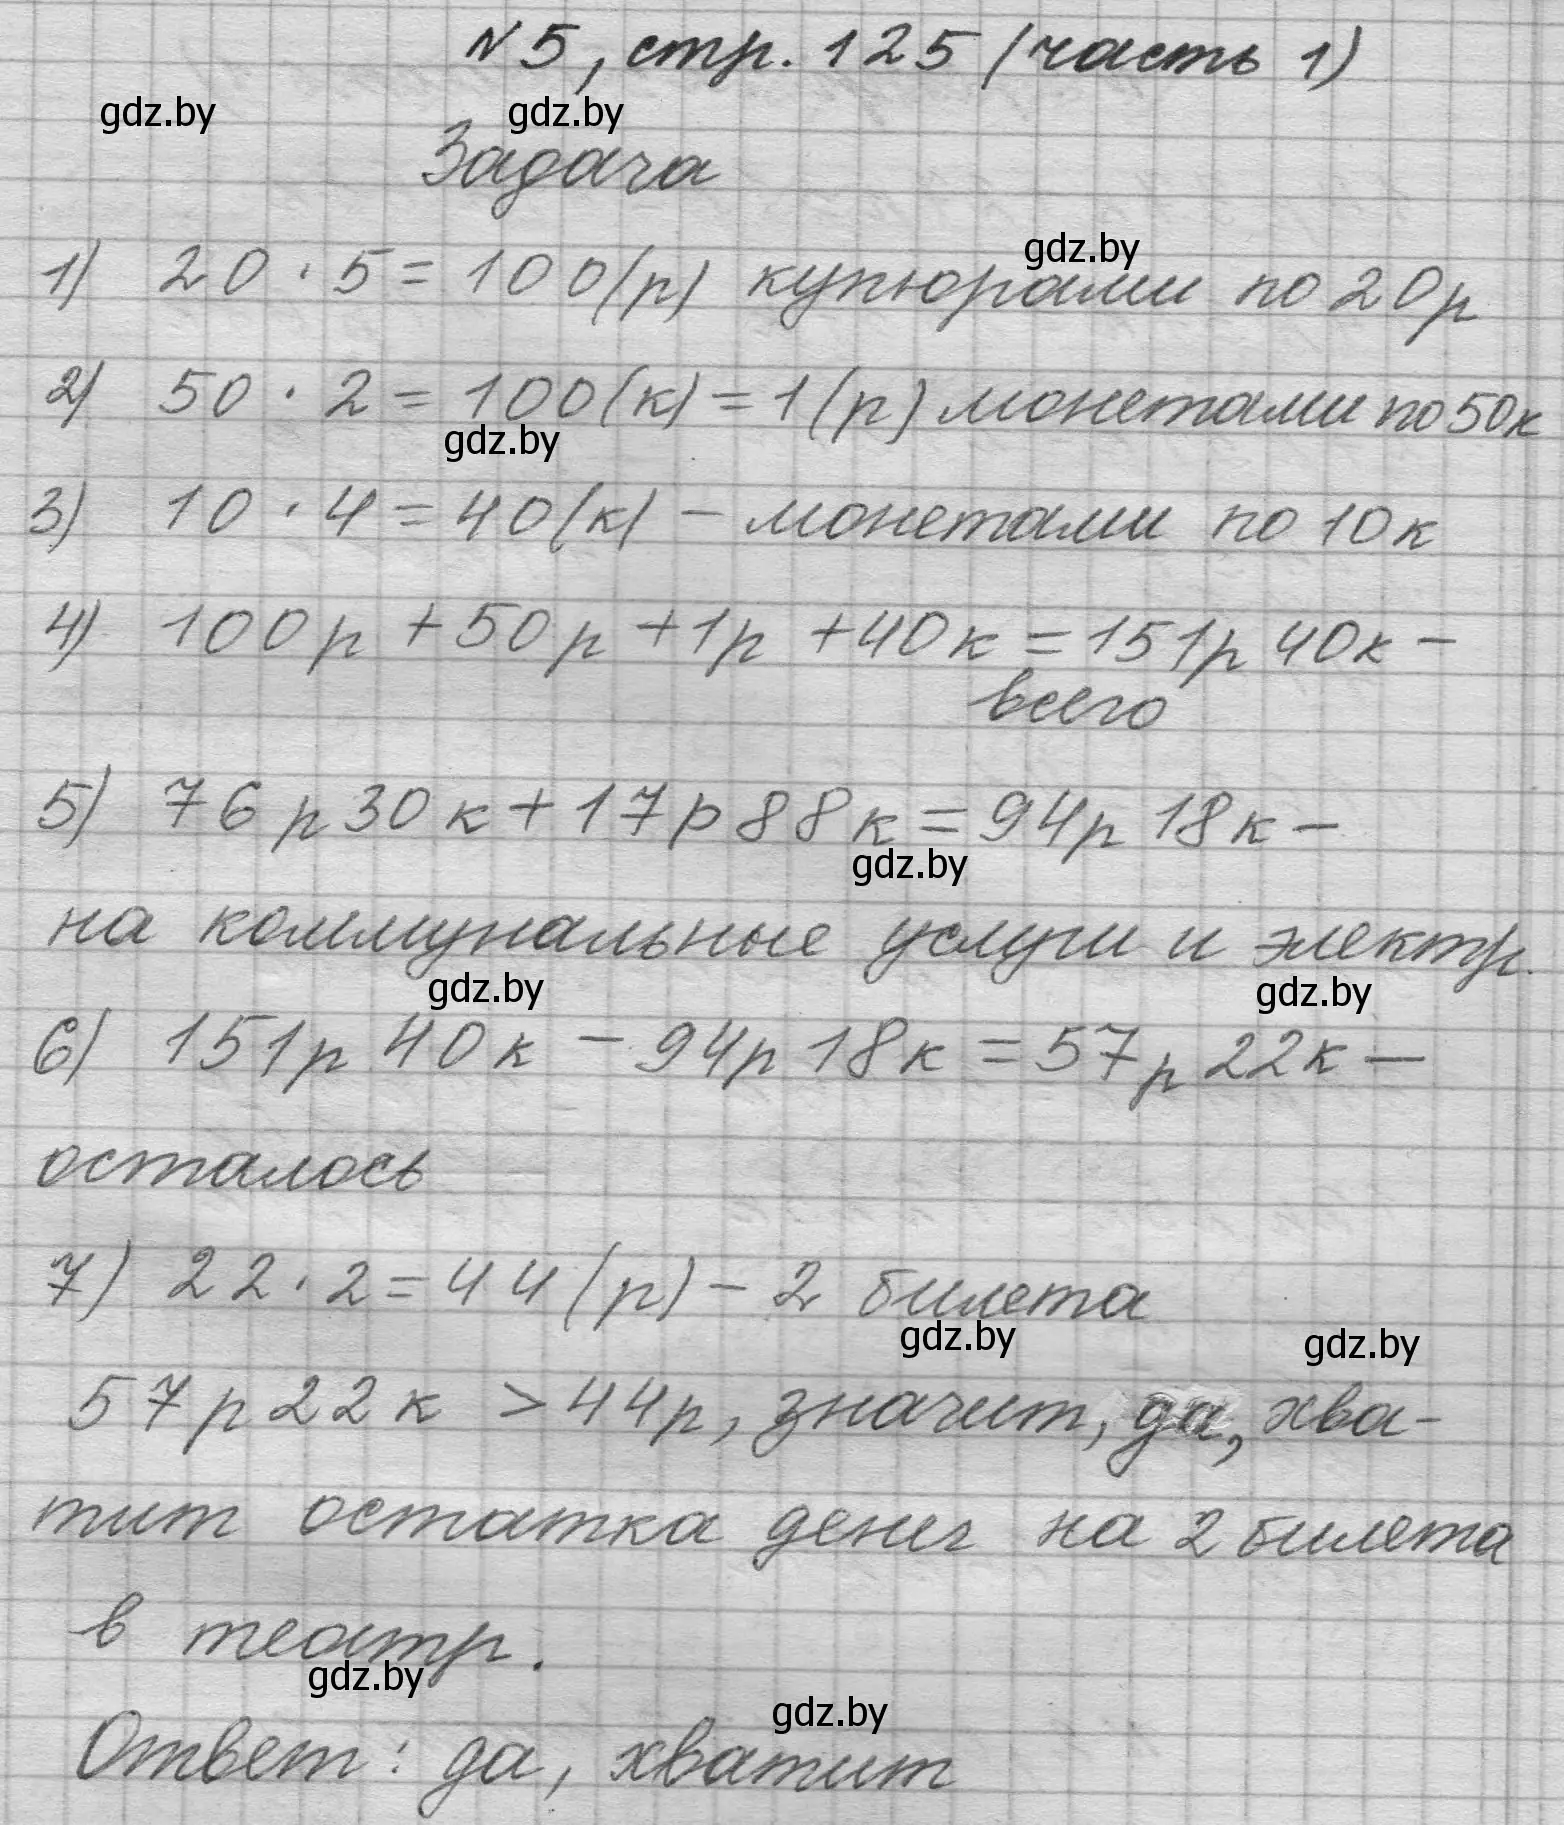 №5, стр. 125 (часть 1)
gdz.by gdz.by
Задача
gdz.by
1) 20 · 5 = 100(р) купюрами по 20р
2) 50 · 2 = 100(к) = 1(р) монетами по 50к
gdz.by
3) 10 · 4 = 40(к) - монетами по 10к
4) 100р + 50р + 1р + 40к = 151р 40к -
всего
5) 76р 30к + 17р 88к = 94р 18к -
gdz.by
на коммунальные услуги и электр.
gdz.by gdz.by
6) 151р 40к - 94р 18к = 57р 22к -
осталось
7) 22 · 2 = 44(р) - 2 билета
gdz.by gdz.by
57р 22к > 44р, значит, да, хва-
тит остатка денег на 2 билета
в театр.
gdz.by gdz.by
Ответ: да, хватит